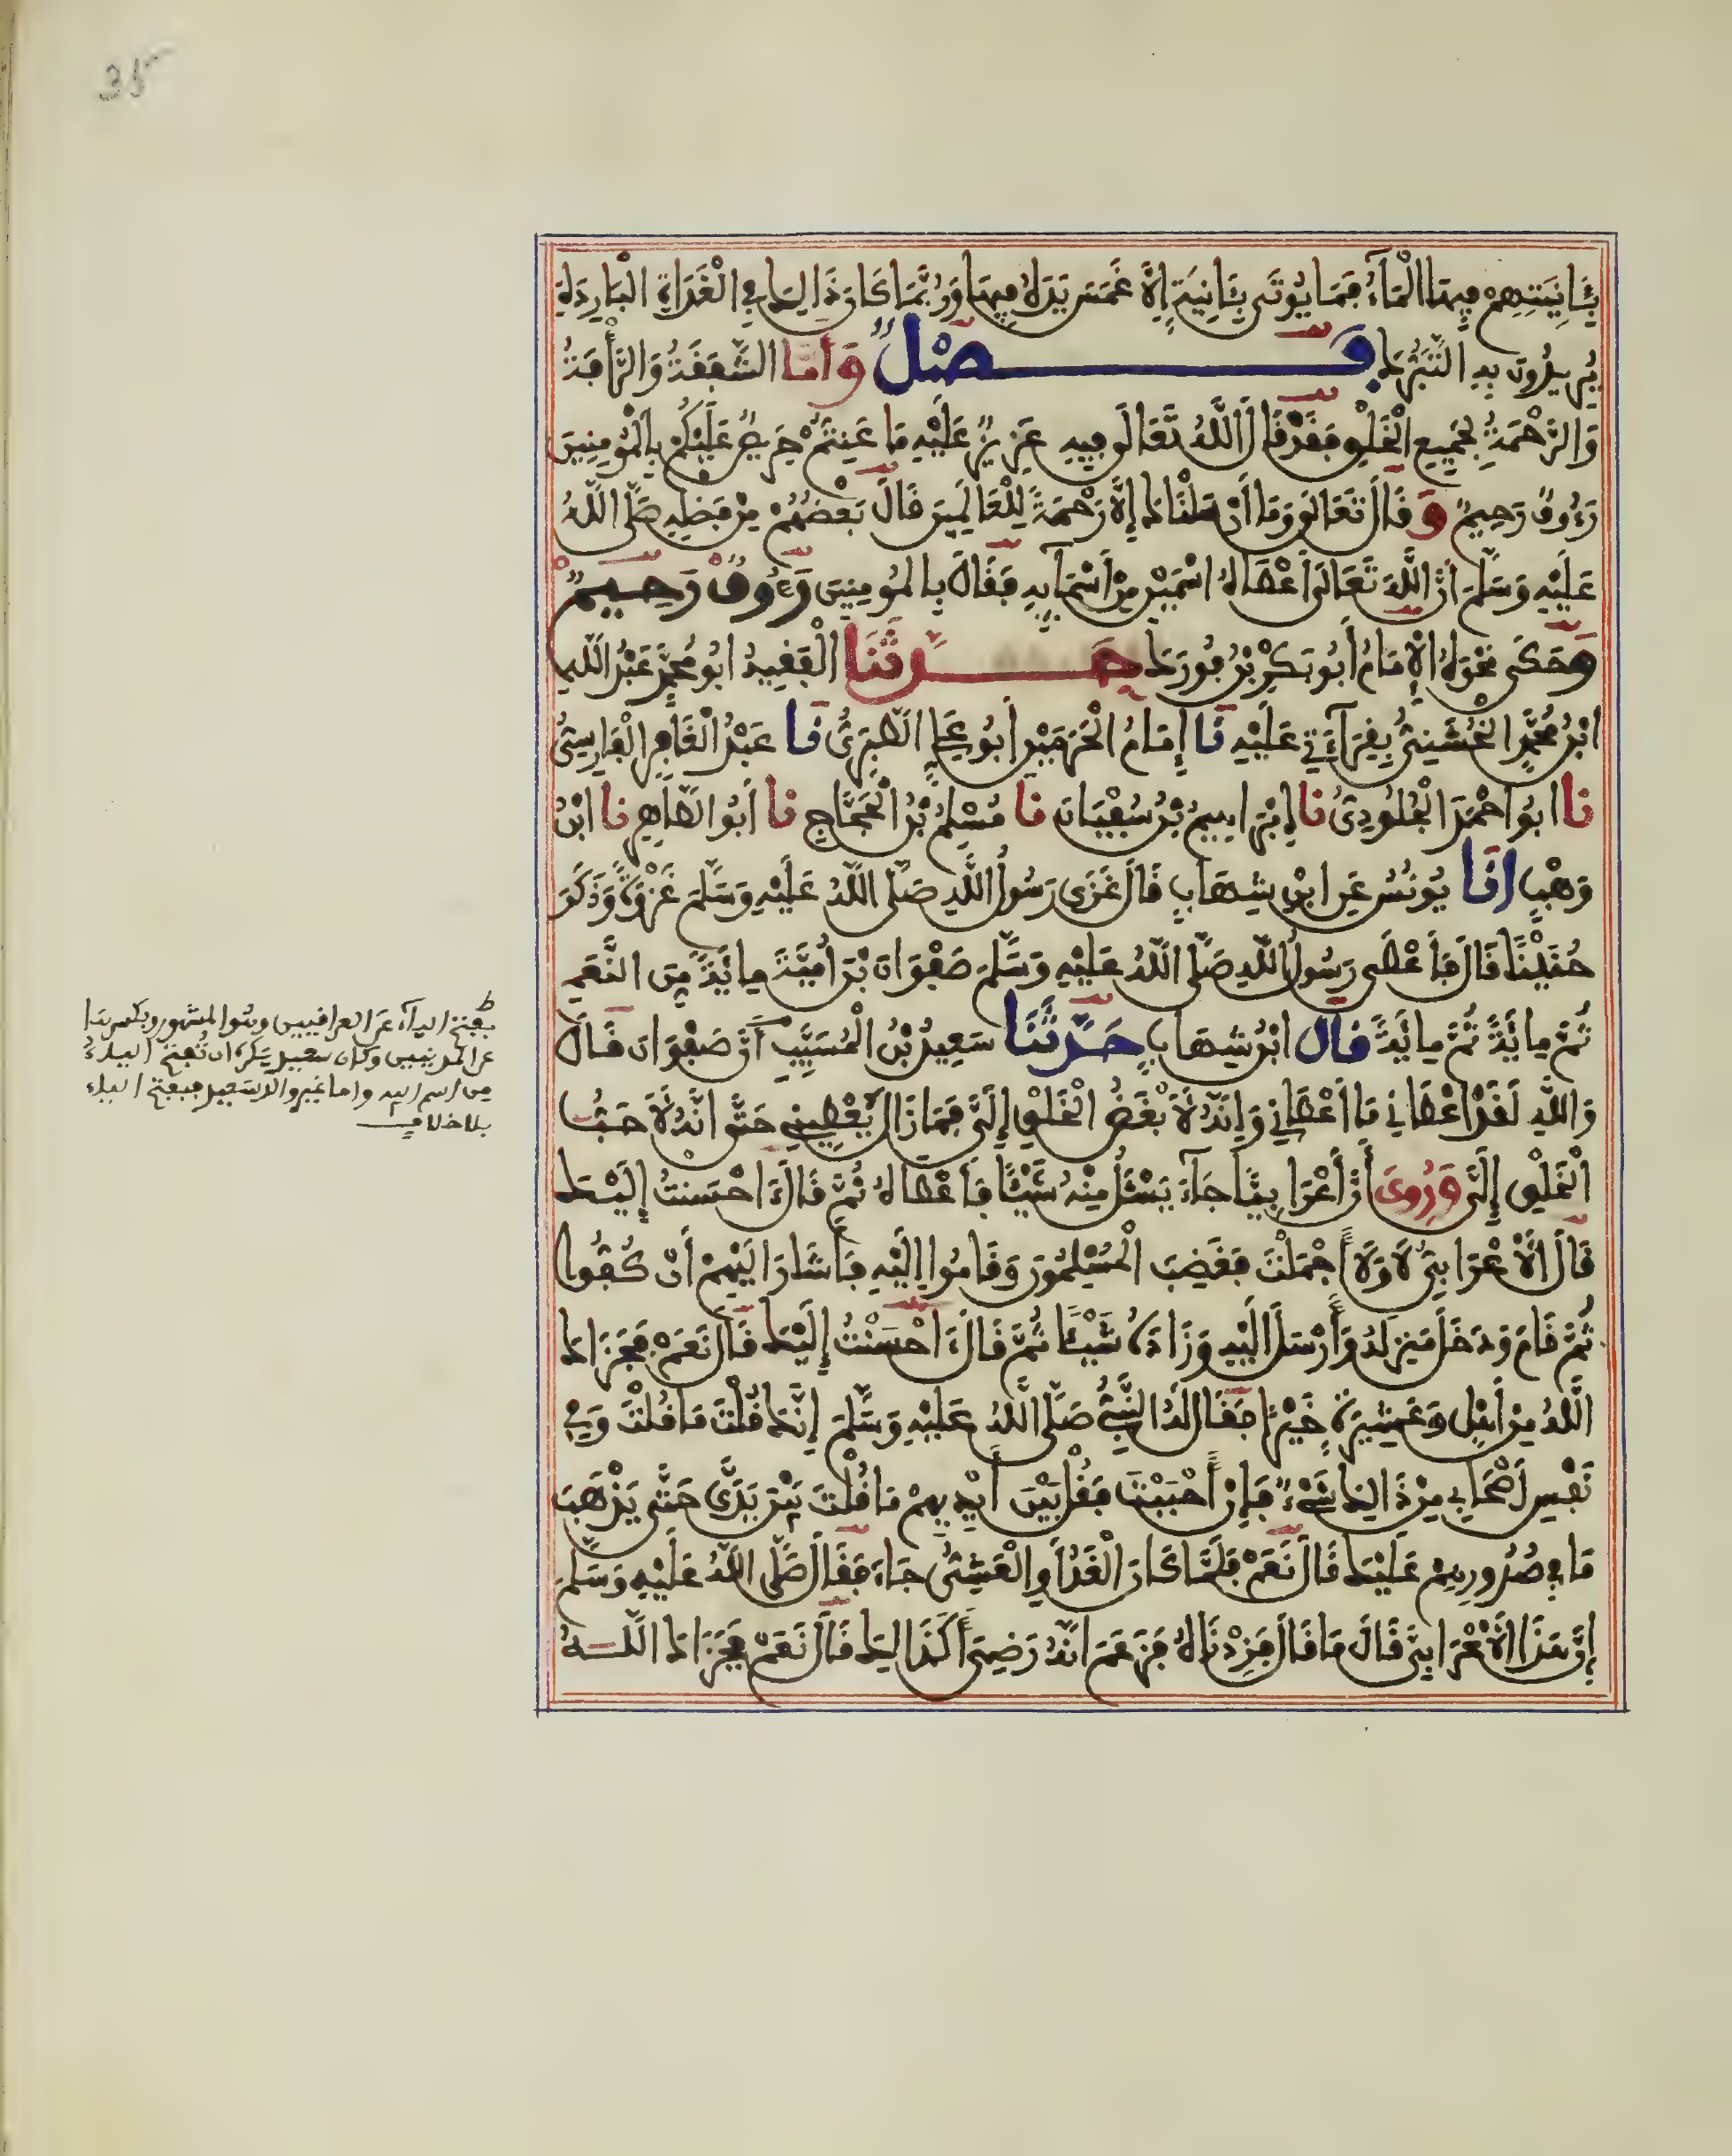 35
بِـَٔانِيَتِهِمْ فِيهَا الْمَآءُ فَمَا يُوتَى بِـَٔانِيَةٍ إِلَّا غَمَسَ يَدَهُ فِيهَا وَرُبَّمَا كَانَ ذَالِكَ فِي الْغَدَاةِ الْبَارِدَةِ
يُرِيدُونَ بِهِ التَّبَرُّكَ فَصْلٌ وَأَمَّا الشَّفَقَةُ وَالرَّأْفَةُ
وَالرَّحْمَةُ لِجَمِيعِ الْخَلْقِ فَقَدْ قَالَ اللَّهُ تَعَالَى فِيهِ عَزِيزٌ عَلَيْهِ مَا عَنِتُّمْ حَرِيصٌ عَلَيْكُمْ بِالْمُومِنِينَ
رَءُوفٌ رَحِيمٌ وَقَالَ تَعَالَى وَمَا أَرْسَلْنَاكَ إِلَّا رَحْمَةً لِلْعَالَمِينَ قَالَ بَعْضُهُمْ مِنْ فَضْلِهِ صَلَّى اللَّهُ
عَلَيْهِ وَسَلَّمَ أَنَّ اللَّهَ تَعَالَى أَعْطَاهُ اسْمَيْنِ مِنْ أَسْمَآيِهِ فَقَالَ بِالْمُومِنِينَ رَءُوفٌ رَحِيمٌ
وَحَكَى نَحْوَهُ الْإِمَامُ أَبُو بَكْرِ بْنُ فُورَكَ حَدَّثَنَا الْفَقِيهُ أَبُو مُحَمَّدٍ عَبْدُ اللَّهِ
ابْنُ مُحَمَّدٍ الْخُشَنِيُّ بِقِرَآءَتِي عَلَيْهِ نَا إِمَامُ الْحَرَمَيْنِ أَبُو عَلِيٍّ الطَّبَرِيُّ نَا عَبْدُ الْغَافِرِ الْفَارِسِيُّ
نَا أَبُو أَحْمَدَ الْجُلُودِيُّ نَا إِبْرَاهِيمُ بْنُ سُفْيَانَ نَا مُسْلِمُ بْنُ الْحَجَّاجِ نَا أَبُو الطَّاهِرِ نَا ابْنُ
وَهْبٍ أَنَا يُونُسُ عَنِ ابْنِ شِهَابٍ قَالَ غَزَى رَسُولُ اللَّهِ صَلَّى اللَّهُ عَلَيْهِ وَسَلَّمَ غَزْوَةً وَذَكَرَ
حُنَيْنًا قَالَ فَأَعْطَى رَسُولُ اللَّهِ صَلَّى اللَّهُ عَلَيْهِ وَسَلَّمَ صَفْوَانَ بْنَ أُمَيَّةَ مِايَةً مِنَ النَّعَمِ
ثُمَّ مِايَةً ثُمَّ مِايَةً قَالَ ابْنُ شِهَابٍ حَدَّثَنَا سَعِيدُ بْنُ الْمُسَيِّبِ أَنَّ صَفْوَانَ قَالَ
وَاللَّهِ لَقَدْ أَعْطَانِي مَا أَعْطَانِي وَإِنَّهُ لَأَبْغَضُ الْخَلْقِ إِلَيَّ فَمَا زَالَ يُعْطِينِي حَتَّى إِنَّهُ لَأَحَبُّ
الْخَلْقِ إِلَيَّ وَرُوِيَ أَنَّ أَعْرَابِيًّا جَآءَ يَسْـَٔلُ مِنْهُ شَيْـًٔا فَأَعْطَاهُ ثُمَّ قَالَ أَحْسَنْتُ إِلَيْكَ
قَالَ الْأَعْرَابِيُّ لَا وَلَا أَجْمَلْتَ فَغَضِبَ الْمُسْلِمُونَ وَقَامُوا إِلَيْهِ فَأَشَارَ إِلَيْهِمْ أَنْ كُفُّوا
ثُمَّ قَامَ وَدَخَلَ مَنْزِلَهُ وَأَرْسَلَ إِلَيْهِ وَزَادَهُ شَيْـًٔا ثُمَّ قَالَ أَحْسَنْتُ إِلَيْكَ قَالَ نَعَمْ فَجَزَاكَ
اللَّهُ مِنْ أَهْلٍ وَعَشِيرَةٍ خَيْرًا فَقَالَ لَهُ النَّبِيُّ صَلَّى اللَّهُ عَلَيْهِ وَسَلَّمَ إِنَّكَ قُلْتَ مَا قُلْتَ وَفِي
نَفْسِ أَصْحَابِي مِنْ ذَالِكَ شَيْءٌ فَإِنْ أَحْبَبْتَ فَقُلْ بَيْنَ أَيْدِيهِمْ مَا قُلْتَ بَيْنَ يَدَيَّ حَتَّى يَذْهَبَ
مَا فِي صُدُورِهِمْ عَلَيْكَ قَالَ نَعَمْ فَلَمَّا كَانَ الْغَدُ أَوِ الْعَشِيُّ جَاءَ فَقَالَ صَلَّى اللَّهُ عَلَيْهِ وَسَلَّمَ
إِنَّ هَذَا الْأَعْرَابِيَّ قَالَ مَا قَالَ فَزِدْنَاهُ فَزَعَمَ أَنَّهُ رَضِيَ أَكَذَالِكَ قَالَ نَعَمْ فَجَزَاكَ اللَّهُ
ط
بفتح الياء عن العراقيين وهو المشهور وبكسرها
عن المدنيين وكان سعيد يكره ان تفتح الياء
من اسم ابيه واما غير والد سعيد فبفتح الياء
بلا خلاف